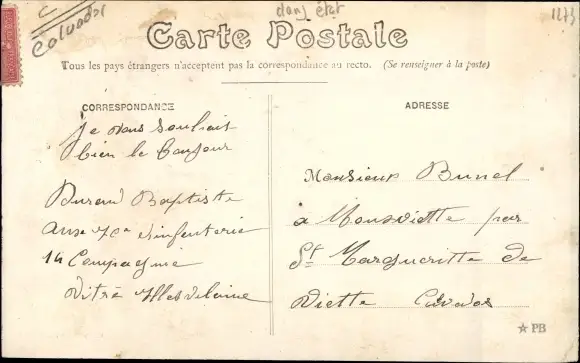 Calvados
dans état
1273
Carte Postale
Tous les pays étrangers n'acceptent pas la correspondance au recto. (Se renseigner à la poste)
CORRESPONDANCE
ADRESSE
Je vous souhait
bien le bonjour
Durand Baptiste
au 70e d'infanterie
14 Compagnie
Vitré Illes vilaine
Monsieur Bunel
à par
St Margueritte de
Viette Calvados
PB